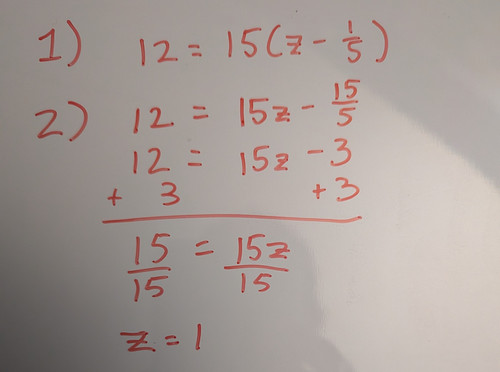 1) 12 = 15(z - 1/5)
2) 12 = 15z - 15/5
12 = 15z - 3
+ 3 +3
15/15 = 15z/15
z = 1